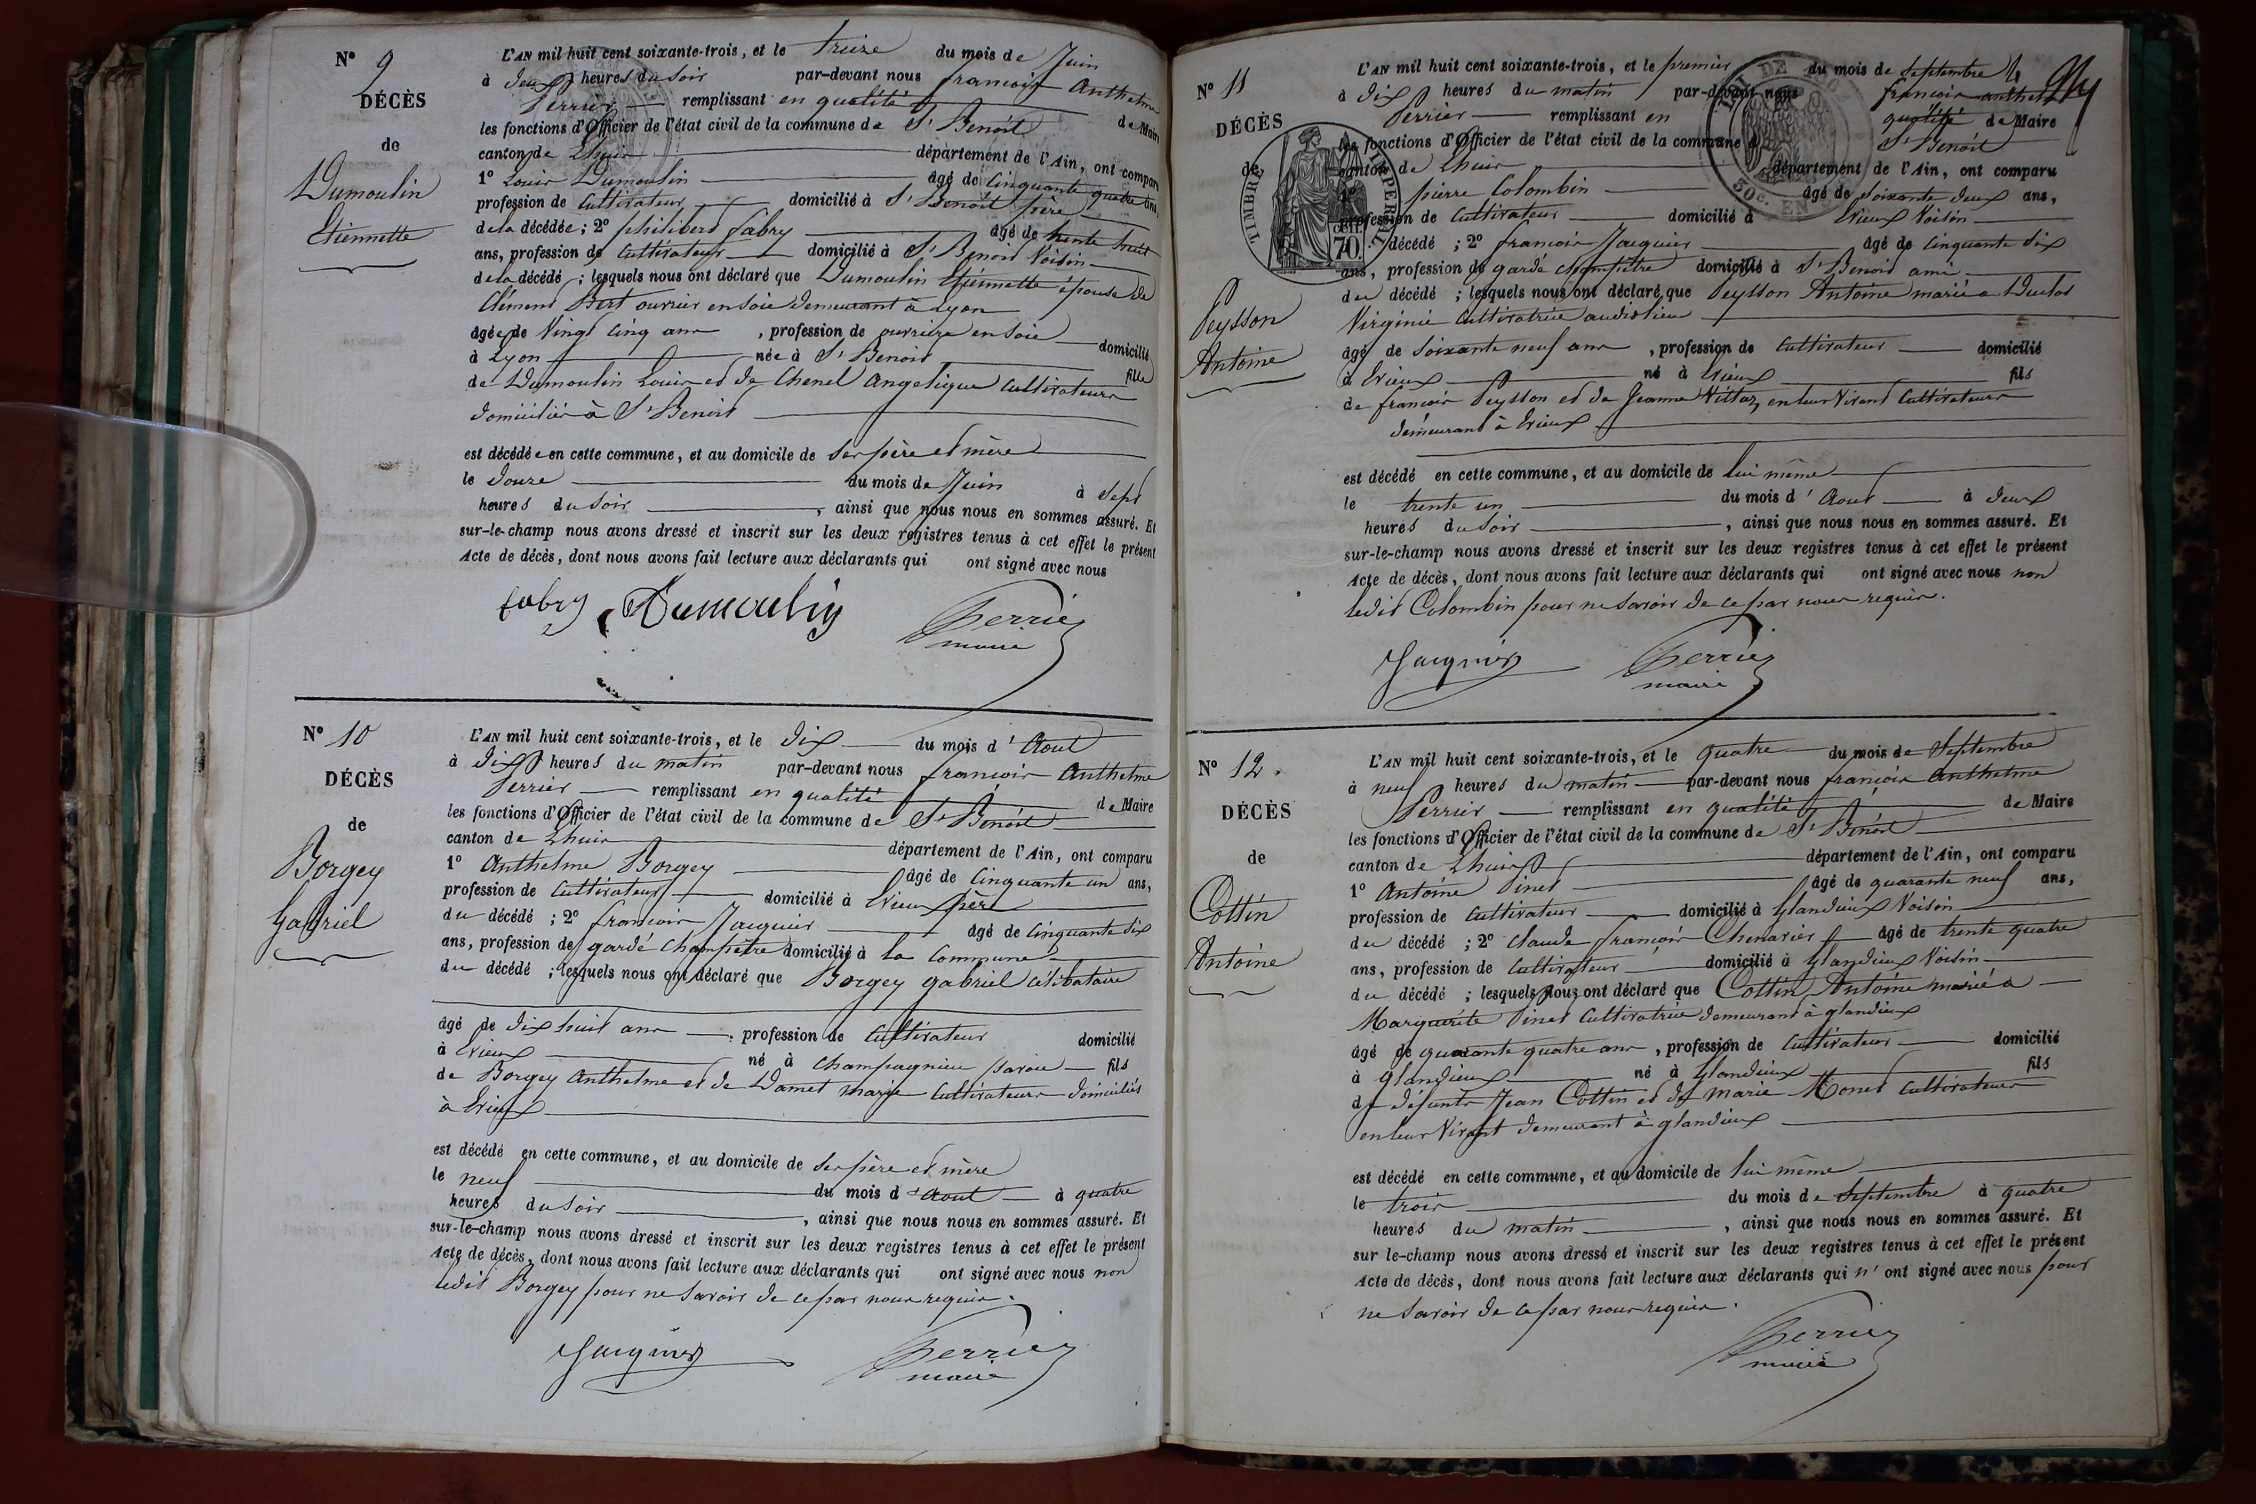 N° 9
DÉCÈS
de
Dumoulin
Etiennette
L'AN mil huit cent soixante-trois, et le treize du mois de Juin
à deux heures du soir par-devant nous françois Anthelme
Perrier remplissant en qualité de Maire
les fonctions d'Officier de l'état civil de la commune de St Benoit
canton de Lhuis département de l'Ain, ont comparu
1° Louis Dumoulin âgé de cinquante quatre ans,
profession de cultivateur domicilié à St Benoit père
de la décédée ; 2° philibert fabry âgé de trente huit
ans, profession de cultivateur domicilié à St Benoit Voisin
de la décédé ; lesquels nous ont déclaré que Dumoulin Etiennette épouse de
Clément Bert ouvrier en soie demeurant à Lyon
âgée de Vingt cinq ans , profession de ouvrière en soie domicilié
à Lyon née à St Benoit fille
de Dumoulin Louis et de Chenel Angelique cultivateurs
domiciliés à St Benoit
est décédée en cette commune, et au domicile de ses père et mère
le douze du mois de Juin à sept
heures du soir , ainsi que nous nous en sommes assuré. Et
sur-le-champ nous avons dressé et inscrit sur les deux registres tenus à cet effet le présent
Acte de décès, dont nous avons fait lecture aux déclarants qui ont signé avec nous
fabry Dumoulin Perrier
maire
N° 10
DÉCÈS
de
Borgey
Gabriel
L'AN mil huit cent soixante-trois, et le dix du mois d'Aout
à dix heures du matin par-devant nous françois Anthelme
Perrier remplissant en qualité de Maire
les fonctions d'Officier de l'état civil de la commune de St Benoit
canton de Lhuis département de l'Ain, ont comparu
1° Anthelme Borgey âgé de cinquante un ans,
profession de cultivateur domicilié à Evieu père
du décédé ; 2° françois Jacquier âgé de cinquante dix
ans, profession de garde champêtre domicilié à la Commune
du décédé ; lesquels nous ont déclaré que Borgey gabriel célibataire
âgé de dix huit ans , profession de cultivateur domicilié
à Evieux né à Champagnieu Savoie fils
de Borgey Anthelme et de Damet marie cultivateurs domiciliés
à Evieux
est décédé en cette commune, et au domicile de ses père et mère
le neuf du mois d'Aout à quatre
heures du soir , ainsi que nous nous en sommes assuré. Et
sur-le-champ nous avons dressé et inscrit sur les deux registres tenus à cet effet le présent
Acte de décès, dont nous avons fait lecture aux déclarants qui ont signé avec nous non
ledit Borgey pour ne savoir de ce par nous requis.
Jacquier Perrier
maire
N° 11
DÉCÈS
de
Peysson
Antoine
TIMBRE IMPERIAL
70
50c. EN
L'AN mil huit cent soixante-trois, et le premier du mois de Septembre
à dix heures du matin par-devant nous françois anthelme
Perrier remplissant en qualité de Maire
les fonctions d'Officier de l'état civil de la commune de St Benoit
canton de Lhuis département de l'Ain, ont comparu
1° pierre Colombin âgé de soixante deux ans,
profession de cultivateur domicilié à Evieux Voisin
décédé ; 2° françois Jacquier âgé de cinquante dix
ans, profession de garde champêtre domicilié à St Benoit ami
du décédé ; lesquels nous ont déclaré que Peysson Antoine marié a
Virginie Cultivatrice audit lieu
âgé de soixante neuf ans , profession de cultivateur domicilié
à Evieux né à Evieux fils
de françois Peysson et de Jeanne Vittoz, en leur Vivant Cultivateurs
demeurant à Evieux
est décédé en cette commune, et au domicile de lui même
le trente un du mois d'Aout à deux
heures du soir , ainsi que nous nous en sommes assuré. Et
sur-le-champ nous avons dressé et inscrit sur les deux registres tenus à cet effet le présent
Acte de décès, dont nous avons fait lecture aux déclarants qui ont signé avec nous non
ledit Colombin pour ne savoir de ce par nous requis.
Jacquier Perrier
maire
N° 12.
DÉCÈS
de
Cottin
Antoine
L'AN mil huit cent soixante-trois, et le quatre du mois de Septembre
à neuf heures du matin par-devant nous françois Anthelme
Perrier remplissant en qualité de Maire
les fonctions d'Officier de l'état civil de la commune de St Benoit
canton de Lhuis département de l'Ain, ont comparu
1° Antoine Pinet âgé de quarante neuf ans,
profession de cultivateur domicilié à Glandieux Voisin
du décédé ; 2° claude françois Chenavier âgé de trente quatre
ans, profession de cultivateur domicilié à Glandieux Voisin
du décédé ; lesquels nous ont déclaré que Cottin Antoine marié a
Marguerite Pinet Cultivatrice demeurant à glandieux
âgé de quarante quatre ans , profession de cultivateur domicilié
à glandieux né à Glandieux fils
de défunts Jean Cottin et de marie Monet cultivateurs
en leur Vivant demeurant à glandieux
est décédé en cette commune, et au domicile de lui même
le trois du mois de Septembre à quatre
heures du matin , ainsi que nous nous en sommes assuré. Et
sur le-champ nous avons dressé et inscrit sur les deux registres tenus à cet effet le présent
Acte de décès, dont nous avons fait lecture aux déclarants qui n'ont signé avec nous pour
ne savoir de ce par nous requis.
Perrier
maire